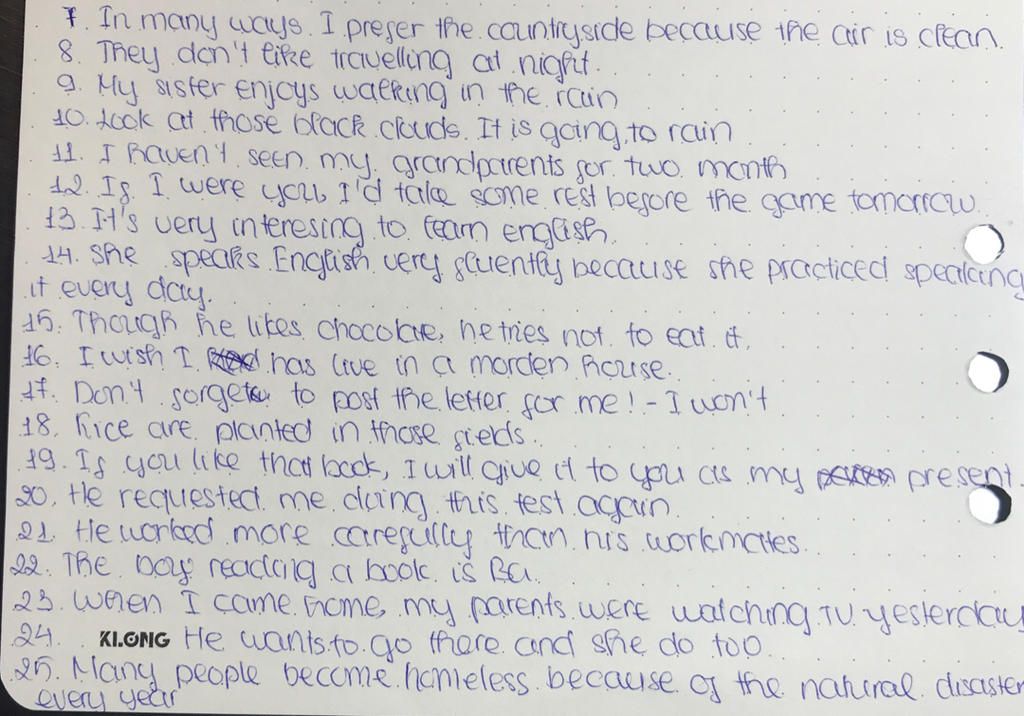 7. In many ways. I prefer the countryside because the air is clean.
8. They don't like travelling at night.
9. My sister enjoys walking in the rain
10. Look at those black clouds. It is going to rain
11. I haven't seen my grandparents for two month
12. If I were you, I'd take some rest before the game tomorrow.
13. It's very interesing to learn english.
14. She speaks English very fluently because she practiced speaking
it every day.
15. Though he likes chocolate, he tries not to eat it.
16. I wish I has live in a morden house.
17. Don't forget to post the letter for me! - I won't
18. Rice are planted in those fields.
19. If you like that book, I will give it to you as my present.
20. He requested me doing this test again.
21. He worked more carefully than his workmates.
22. The boy reading a book is Ba.
23. When I came home, my parents were watching TV yesterday
24. KLONG He wants to go there and she do too.
25. Many people become homeless because of the natural disaster
every year